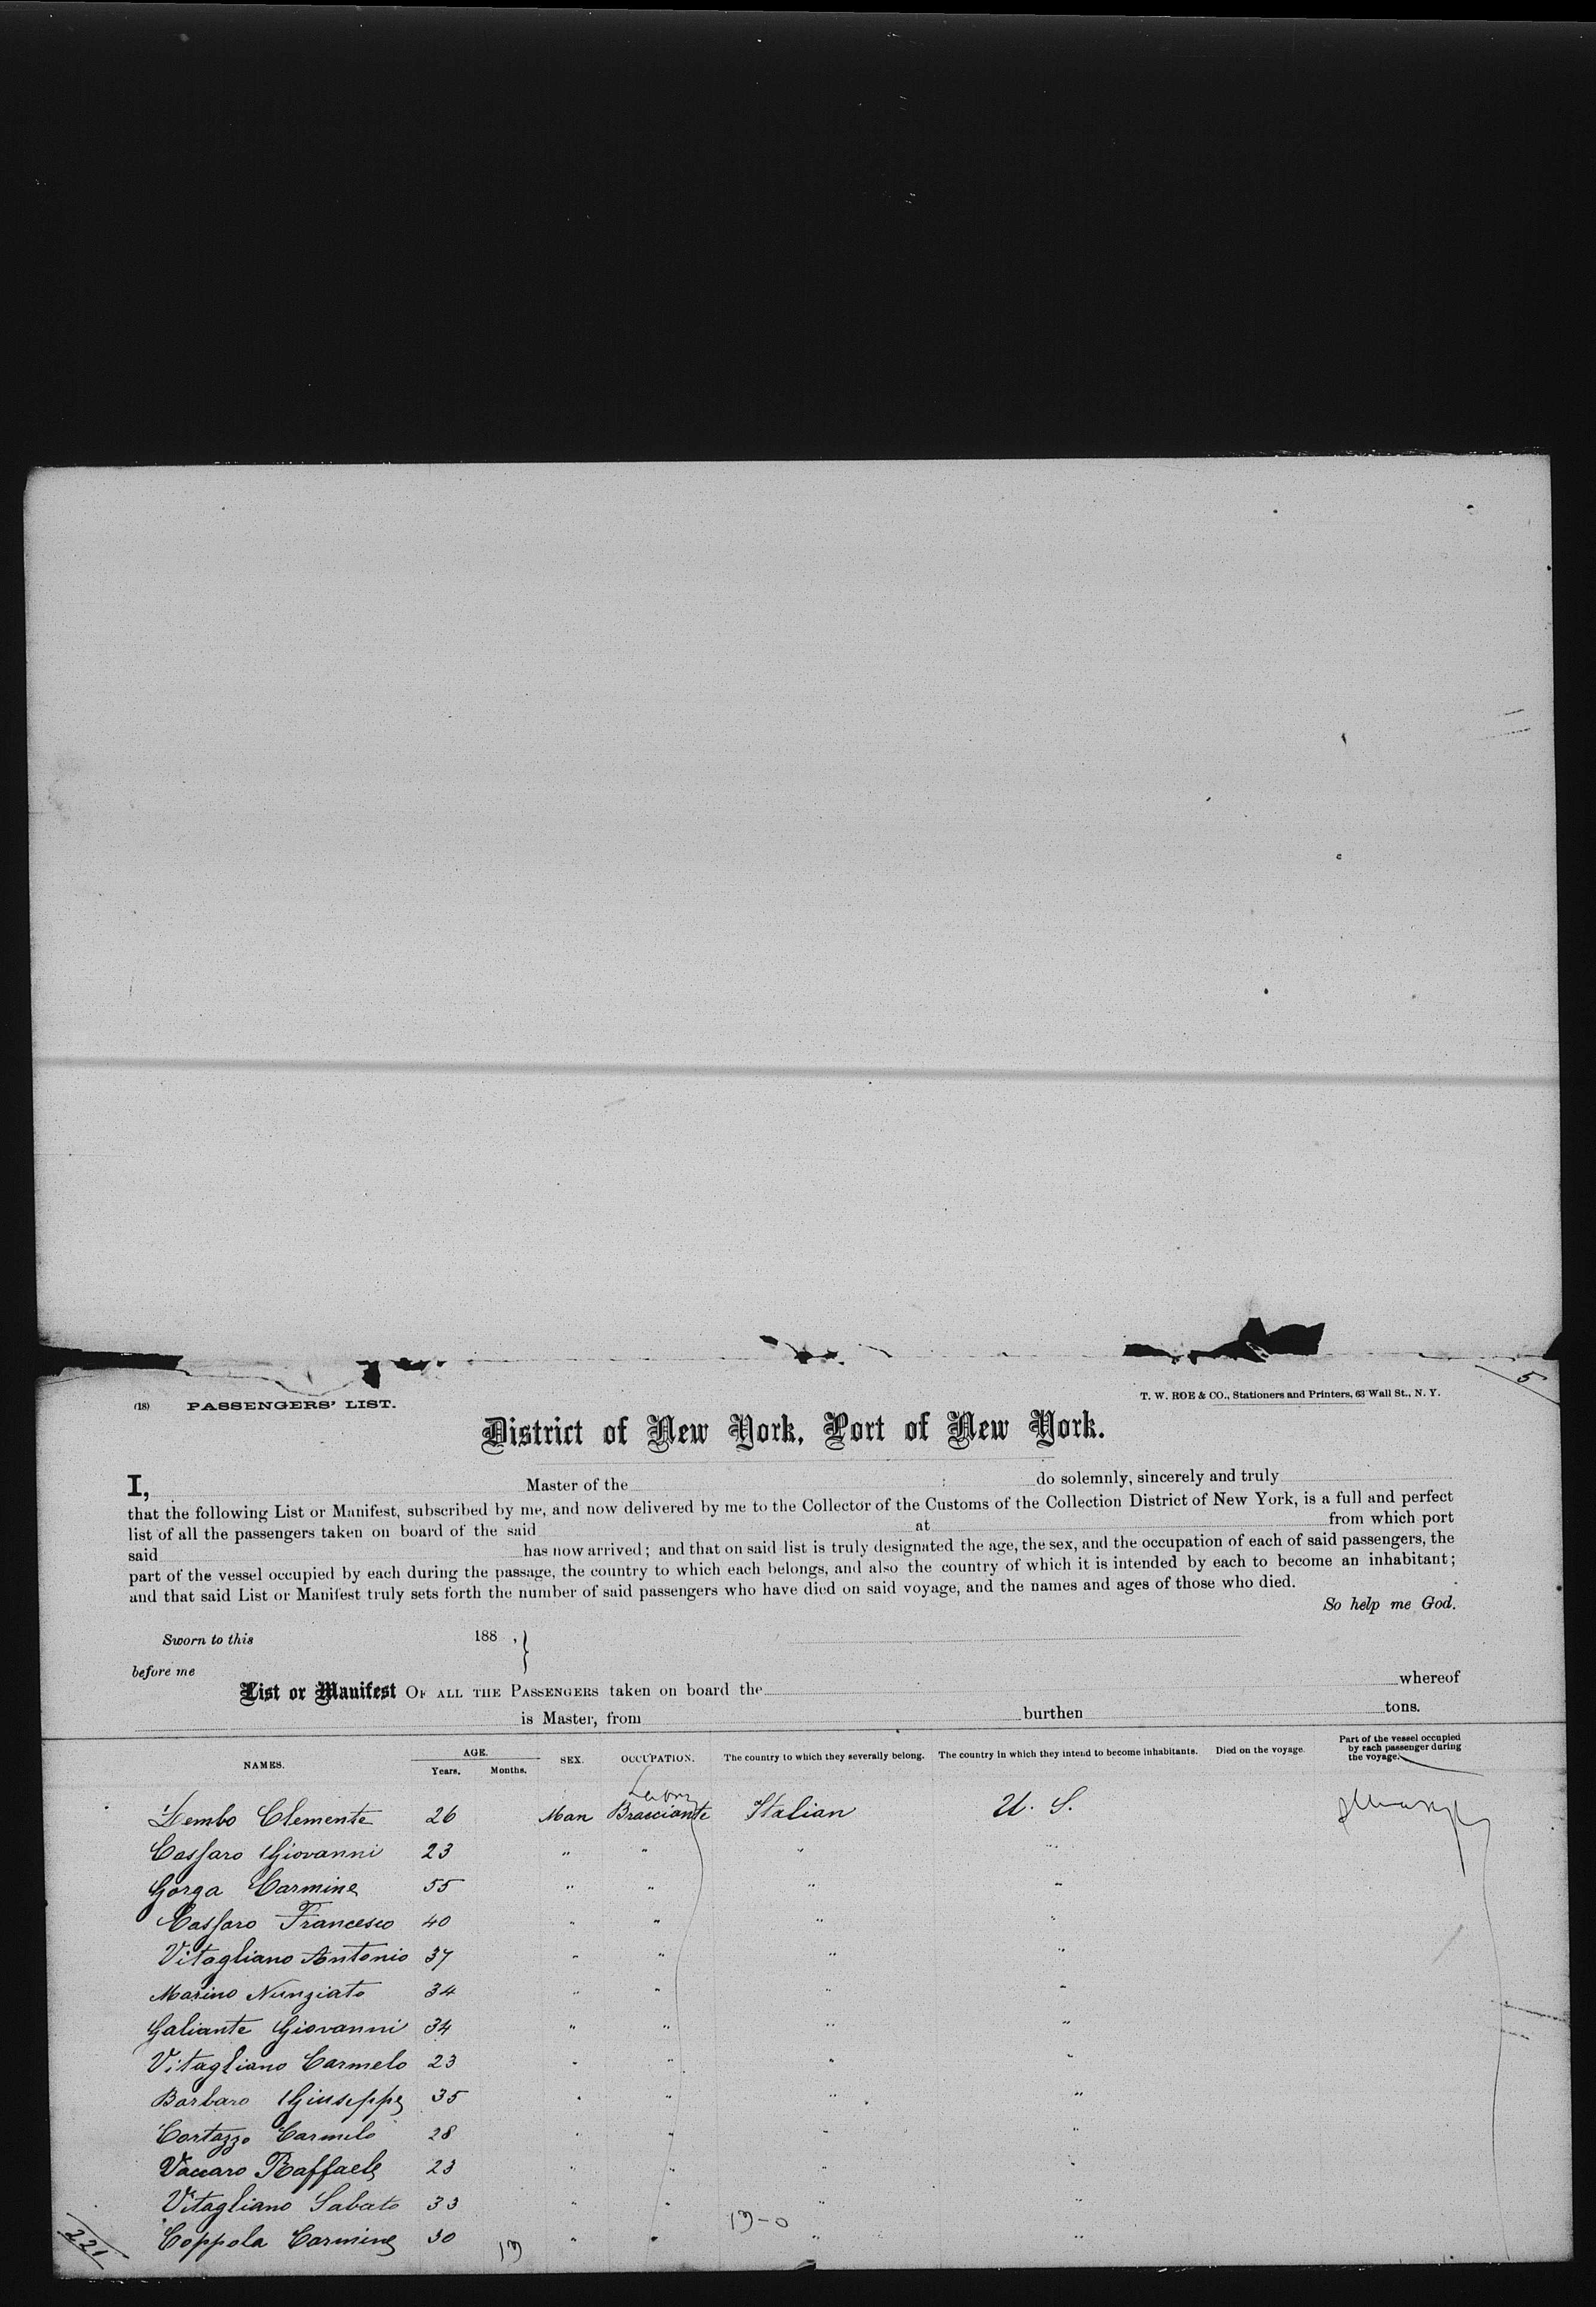 5
(18) PASSENGERS' LIST.
T. W. ROE & CO., Stationers and Printers, 63 Wall St., N. Y.
District of New York, Port of New York.
I, Master of the do solemnly, sincerely and truly
that the following List or Manifest, subscribed by me, and now delivered by me to the Collector of the Customs of the Collection District of New York, is a full and perfect
list of all the passengers taken on board of the said at from which port
said has now arrived; and that on said list is truly designated the age, the sex, and the occupation of each of said passengers, the
part of the vessel occupied by each during the passage, the country to which each belongs, and also the country of which it is intended by each to become an inhabitant;
and that said List or Manifest truly sets forth the number of said passengers who have died on said voyage, and the names and ages of those who died.
So help me God.
Sworn to this 188 , }
before me
List or Manifest OF ALL THE PASSENGERS taken on board the whereof
is Master, from burthen tons.
NAMES. AGE. Years. Months. SEX. OCCUPATION. The country to which they severally belong. The country in which they intend to become inhabitants. Died on the voyage. Part of the vessel occupied by each passenger during the voyage.
Labor
Lembo Clemente 26 Man Bracciante Italian U. S.
Cassaro Giovanni 23 " " " "
Gorga Carmine 55 " " " "
Cassaro Francesco 40 " " " "
Vitagliano Antonio 37 " " " "
Marino Nunziato 34 " " " "
Galiante Giovanni 34 " " " "
Vitagliano Carmelo 23 " " " "
Barbaro Giuseppe 35 " " " "
Cortazzo Carmelo 28 " " " "
Vaccaro Raffaele 23 " " " "
Vitagliano Sabato 33 " " " "
Coppola Carmine 30 " " " "
13-0
13
221